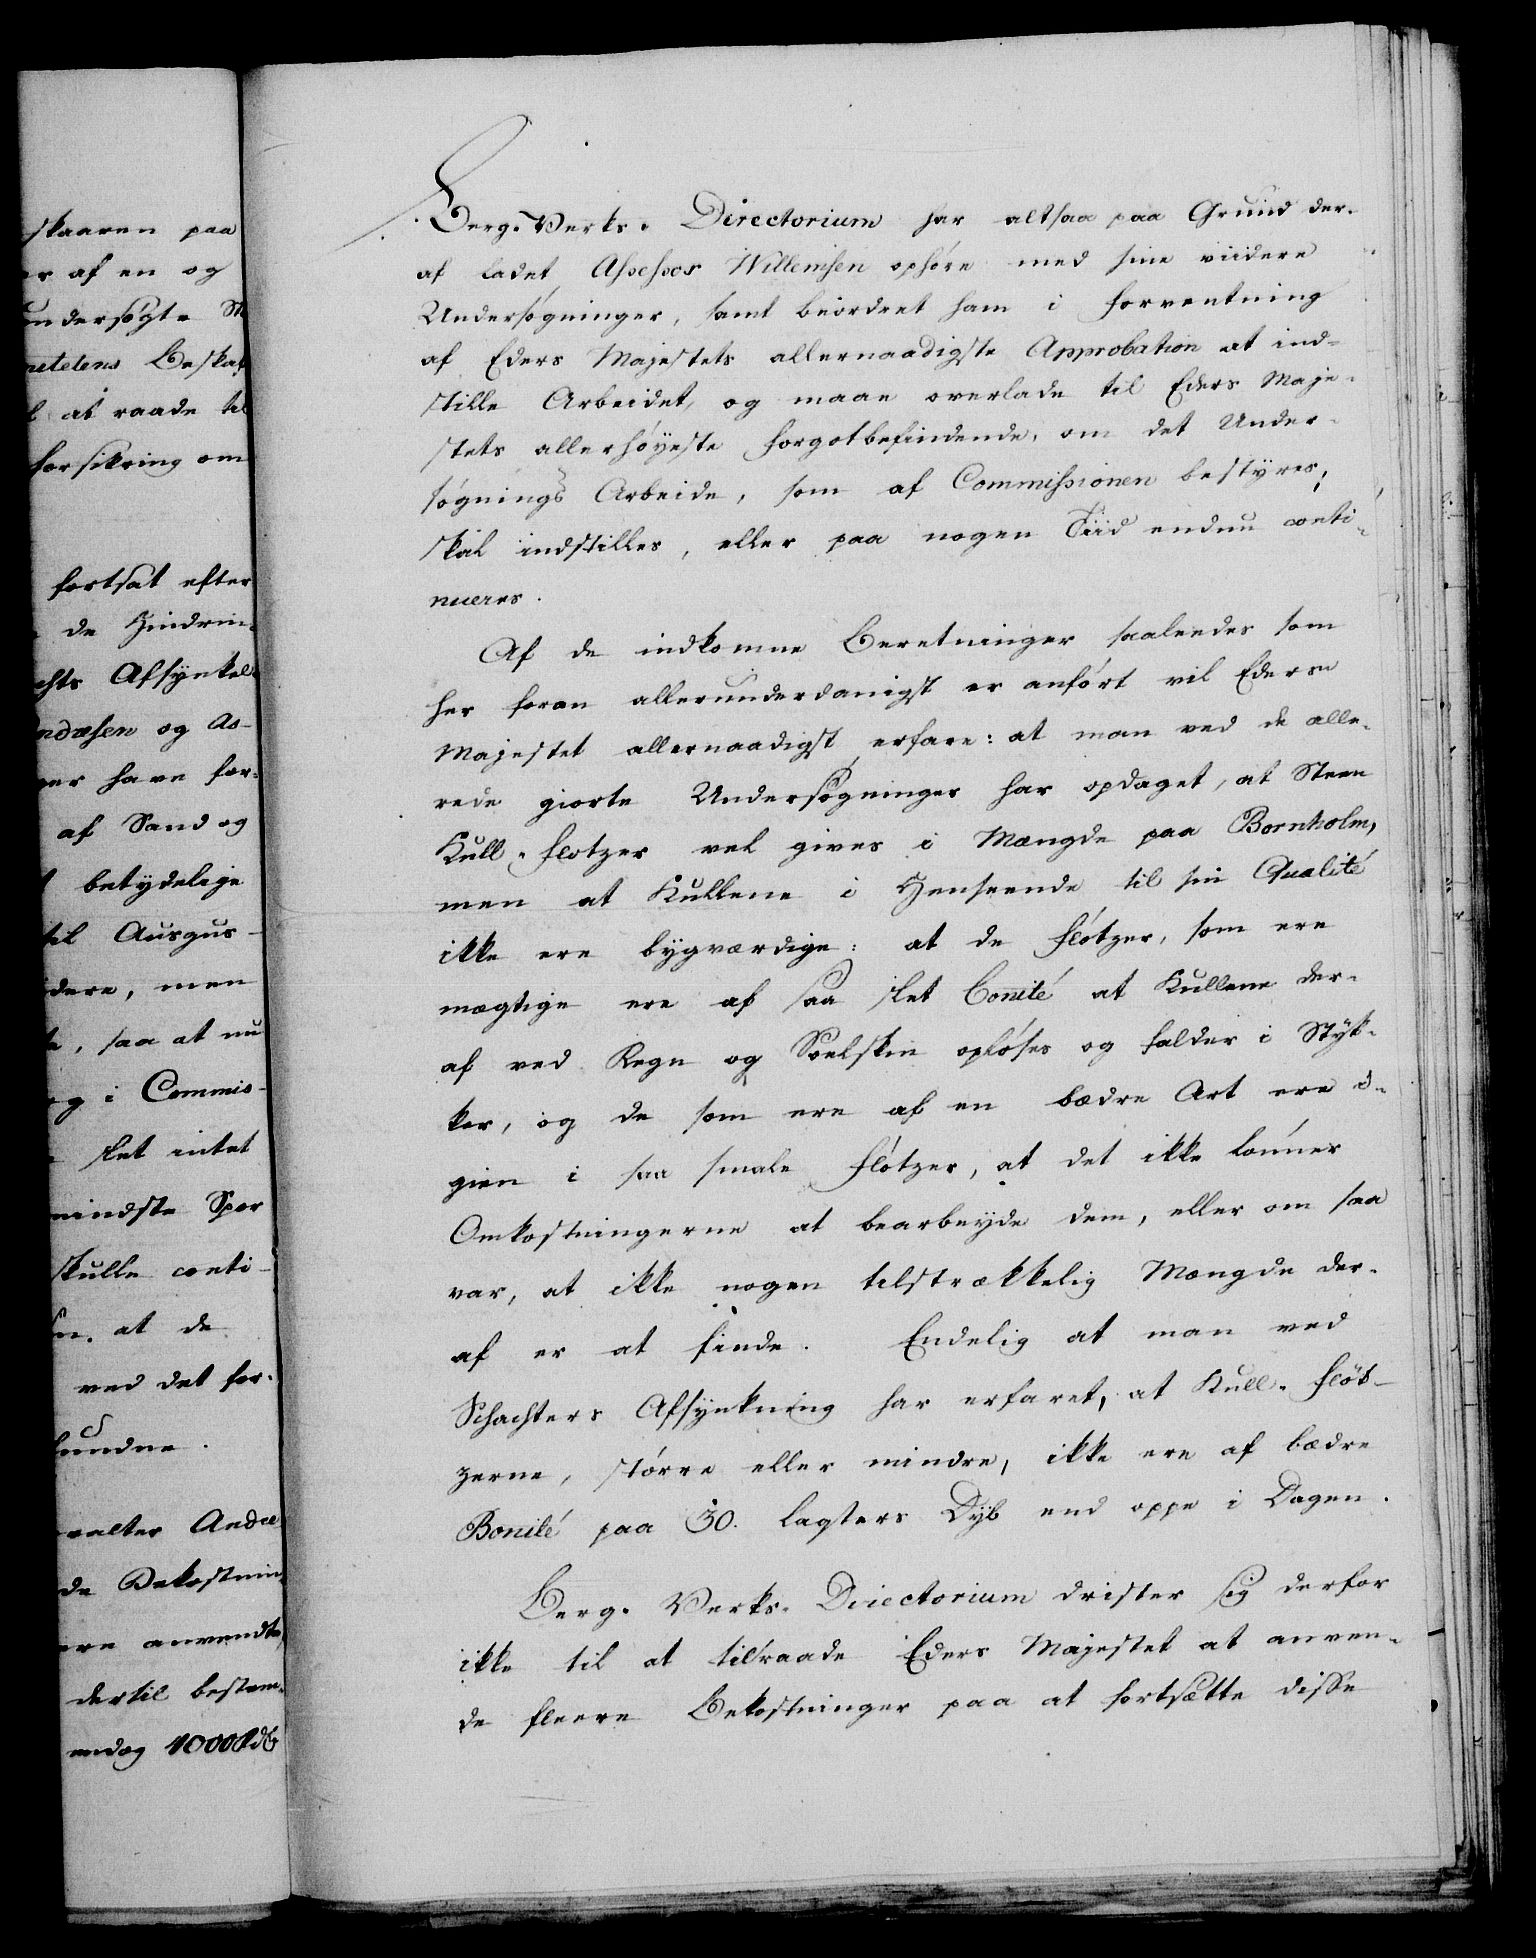 skaaren paa
er af en og
undersøgte St
netelens Beskaf
l at raade til
forsikring om
fortsat efter
de Hindrin-
chts Afsynkel-
ndæsen og As-
ger have for-
af Sand og
betydelige
til Ausgus-
dere, men
te, saa at nu
og i Commis-
slet intet
mindste Spor
skulle conti-
en. at de
ved det for-
fundne.
valter Andre
de Bekostnin-
ere anvendte
dertil bestem-
endog 1000 Rd
Berg-Verks-Directorium har altsaa paa Grund der-
af ladet Assessor Willemsen ophøre med sine viidere
Undersøgninger, samt beordret ham i Forventning
af Eders Majestets allernaadigste Approbation at ind-
stille Arbeidet, og maae overlade til Eders Maje-
stets allerhøyeste Forgotbefindende, om det Under-
søgnings Arbeide, som af Commissionen bestyres,
skal indstilles, eller paa nogen Tiid endnu conti-
nueres.
Af de indkomne Beretninger saaleedes som
her foran allerunderdanigst er anført vil Eders
Majestet allernaadigst erfare: at man ved de alle-
rede giorte Undersøgninger har opdaget, at Steen
Kull-Flotzer vel gives i Mængde paa Bornholm,
men at Kullene i Henseende til sin Qualité
ikke ere bygværdige: at de Fløtzer, som ere
mægtige ere af saa slet Bonité at Kullene der-
af ved Regn og Soelskin opløses og falder i Styk-
ker, og de som ere af en bædre Art ere i-
gien i saa smale Fløtzer, at det ikke lønner
Omkostningerne at bearbeyde dem, eller om saa
var, at ikke nogen tilstrækkelig Mængde der-
af er at finde. Endelig at man ved
Schachters Afsynkning har erfaret, at Kull-Fløt-
zerne, større eller mindre, ikke ere af bædre
Bonité paa 30. Lagters Dyb end oppe i Dagen.
Berg-Verks-Directorium drister sig derfor
ikke til at tilraade Eders Majestet at anven-
de fleere Bekostninger paa at fortsætte disse